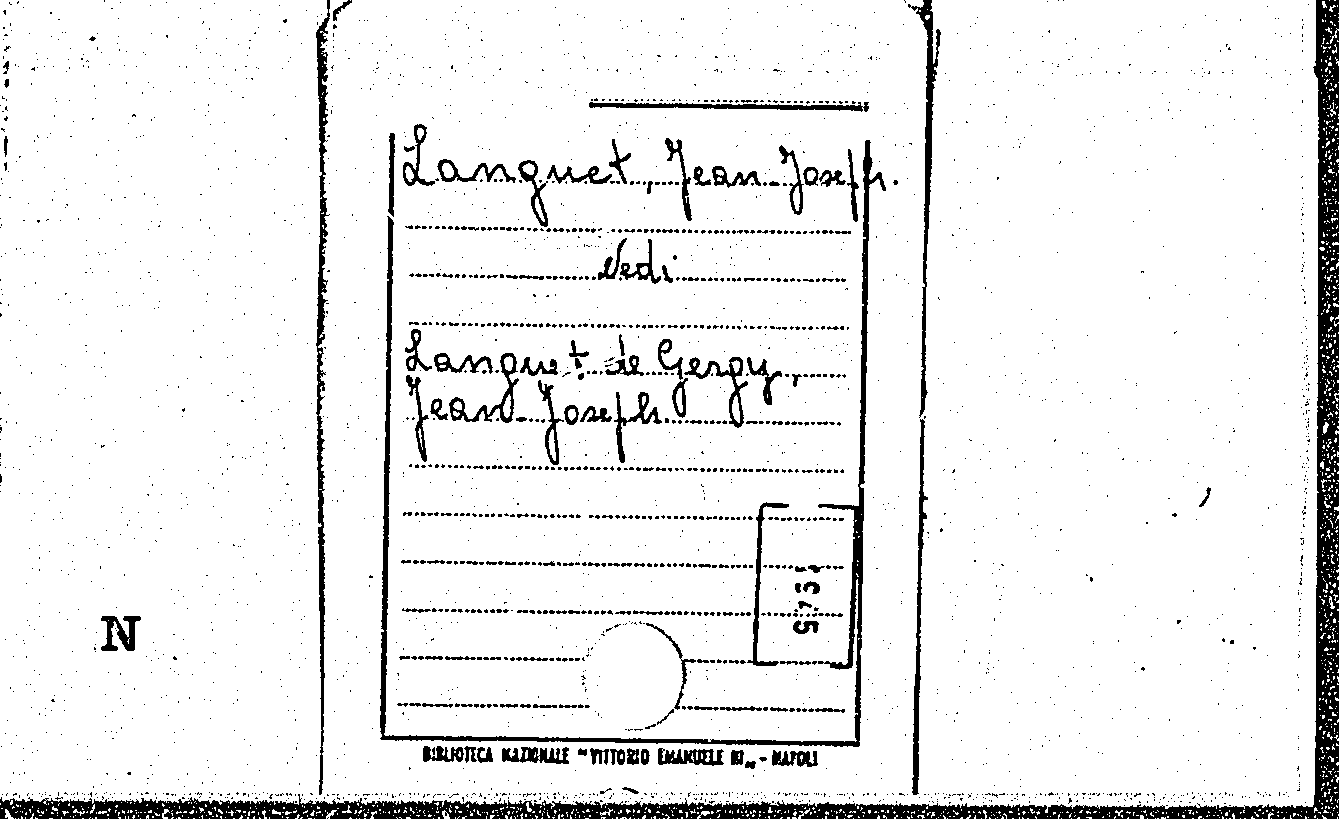 Languet, Jean-Joseph.
Vedi
Languet de Gergy,
Jean-Joseph.
N
BIBLIOTECA NAZIONALE "VITTORIO EMANUELE III" - NAPOLI